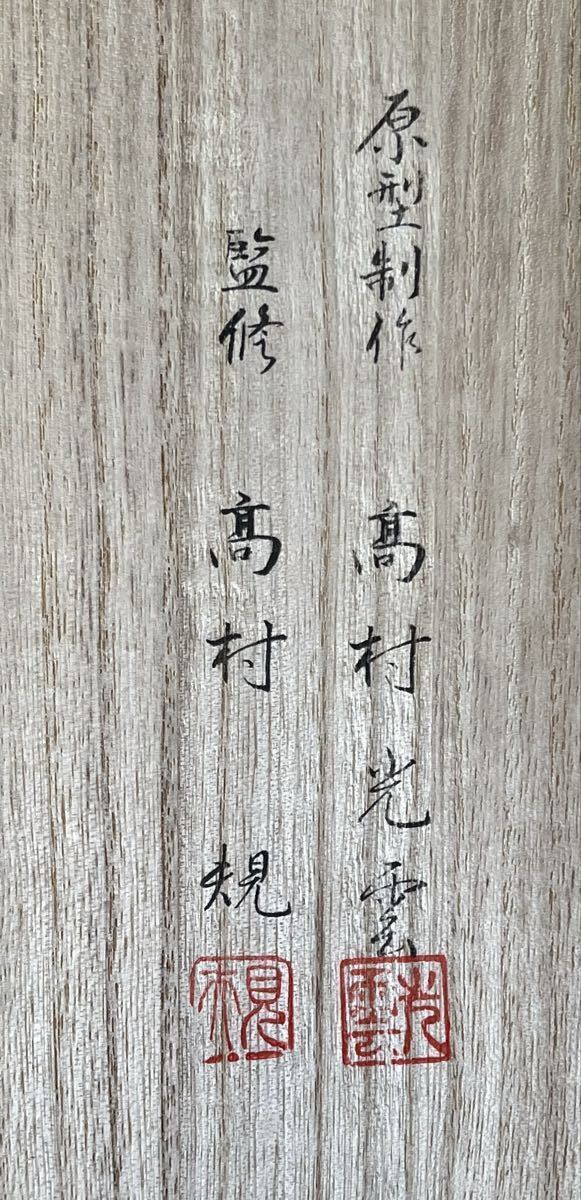 原型制作 髙村光雲
光雲
監修 髙村規
規